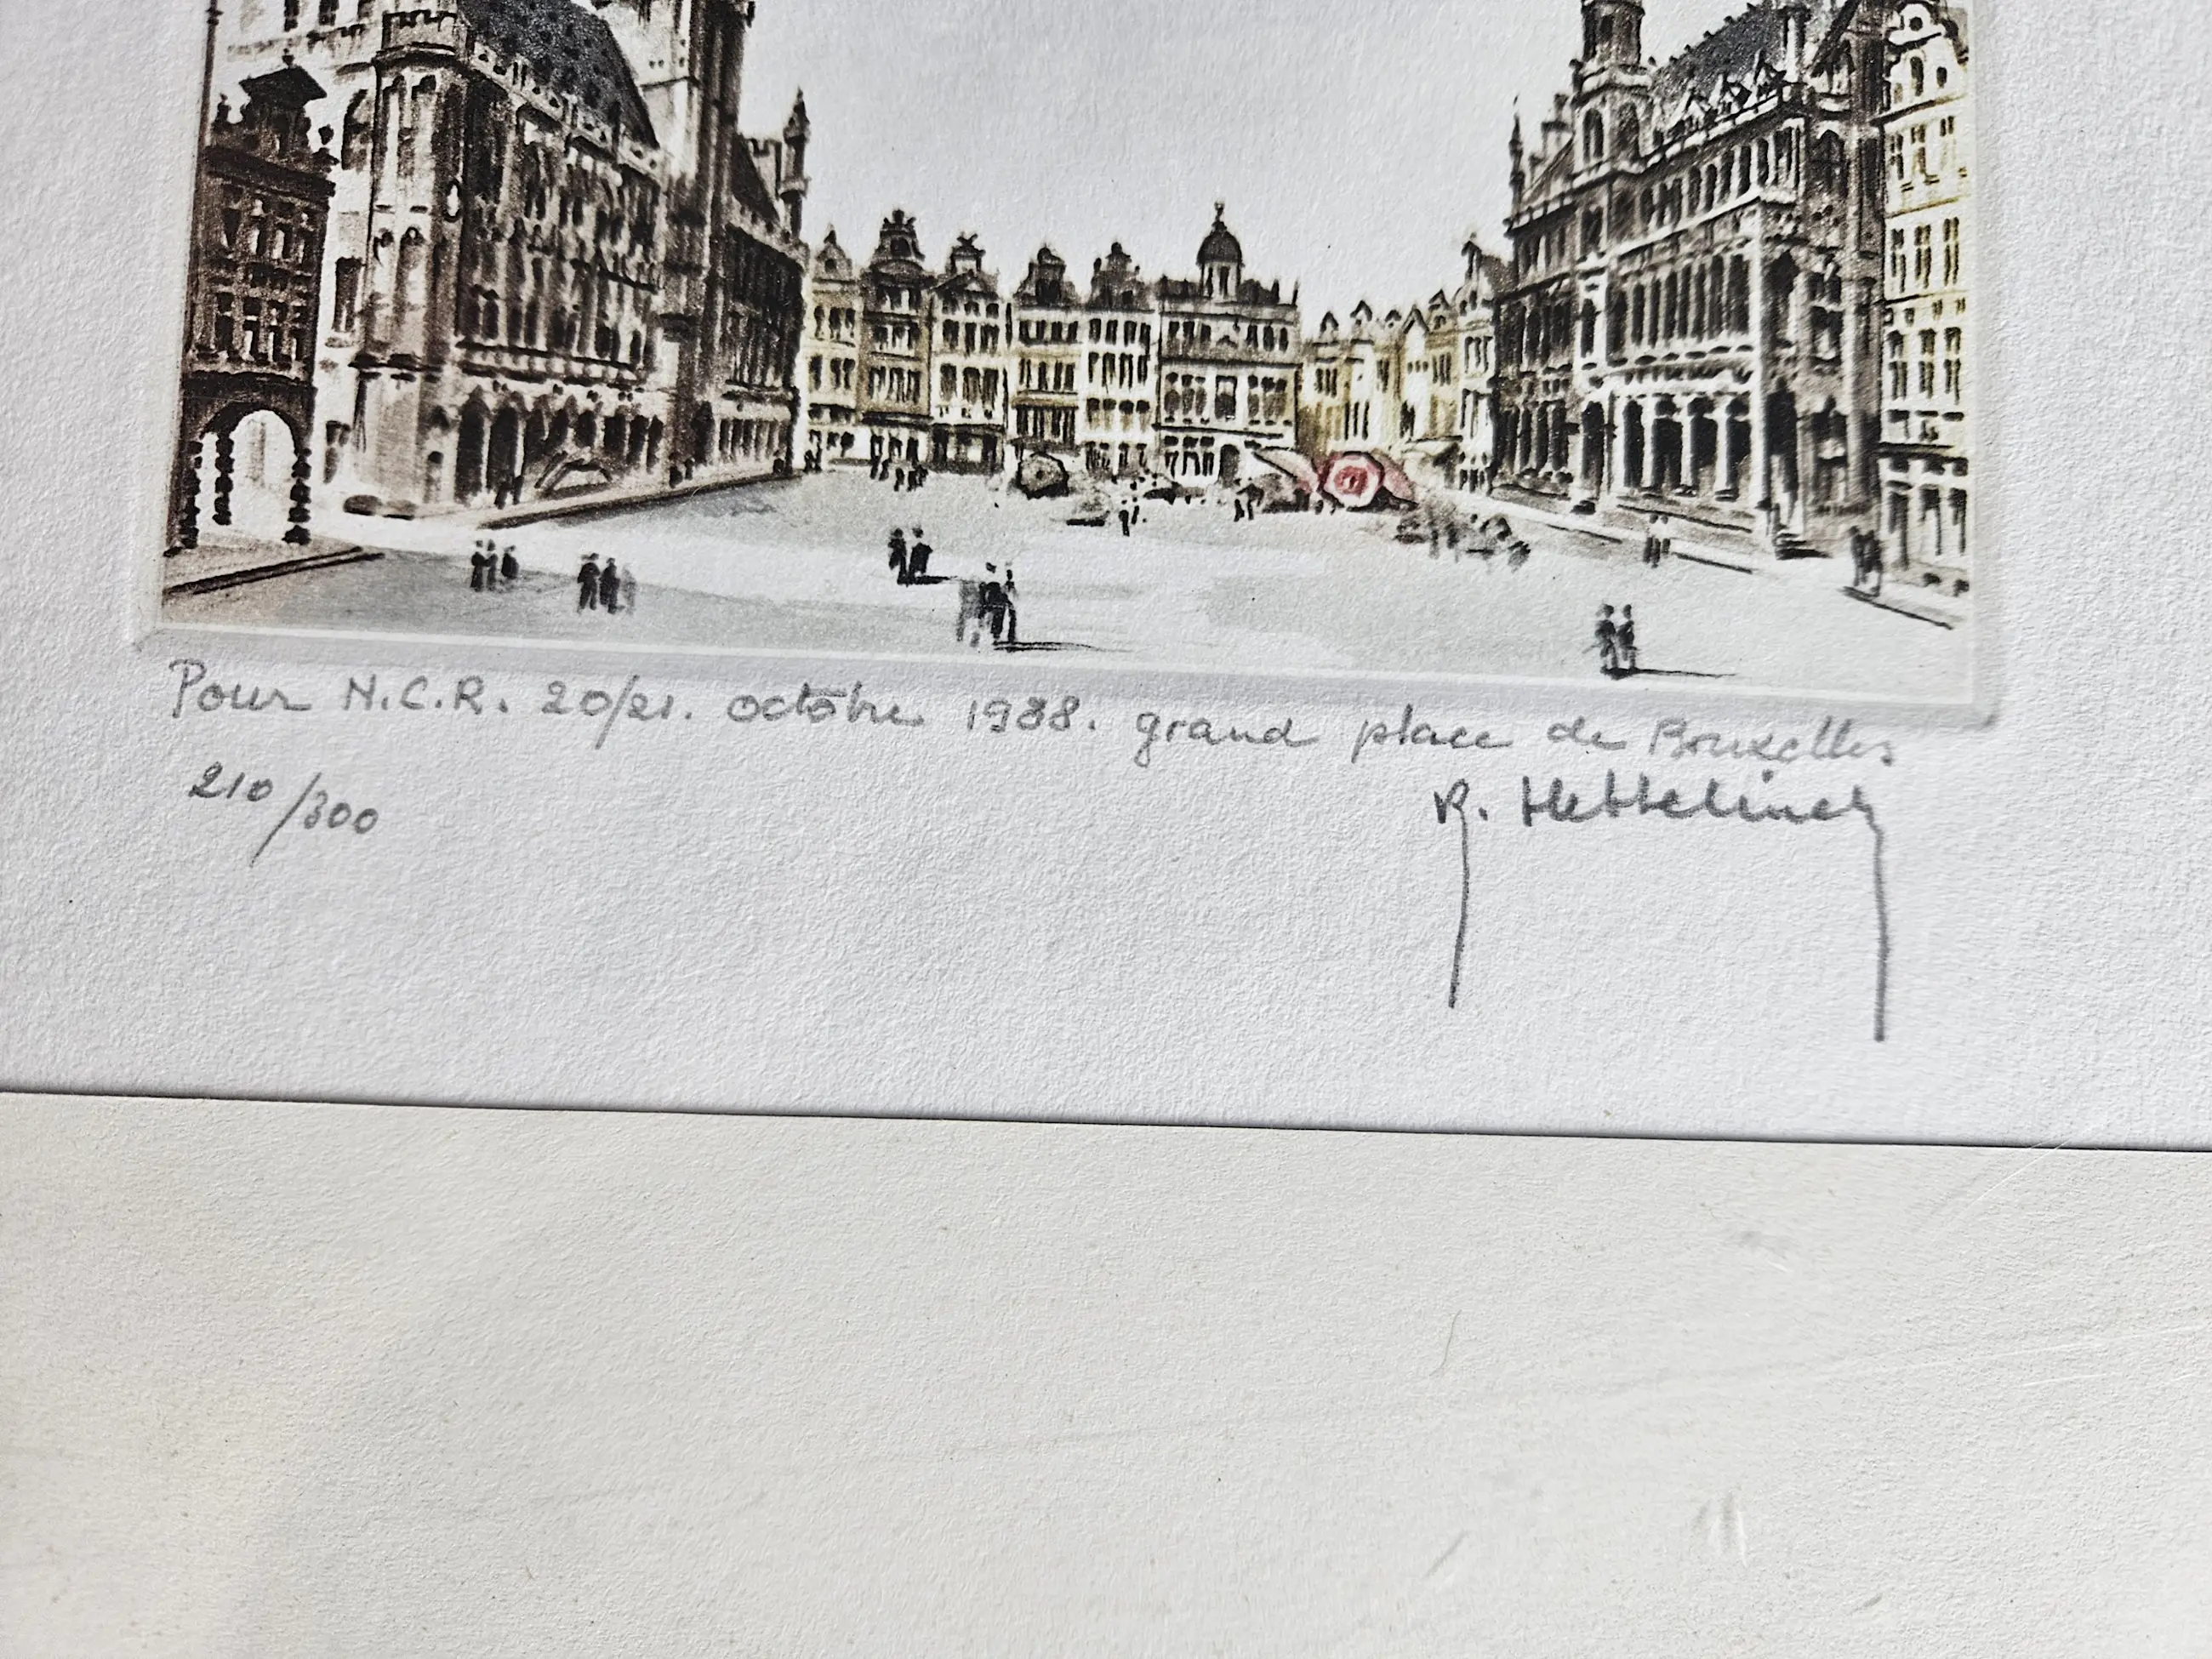 Pour N.C.R. 20/21. octobre 1988. grand place de Bruxelles
210/300
R. Hettelinck